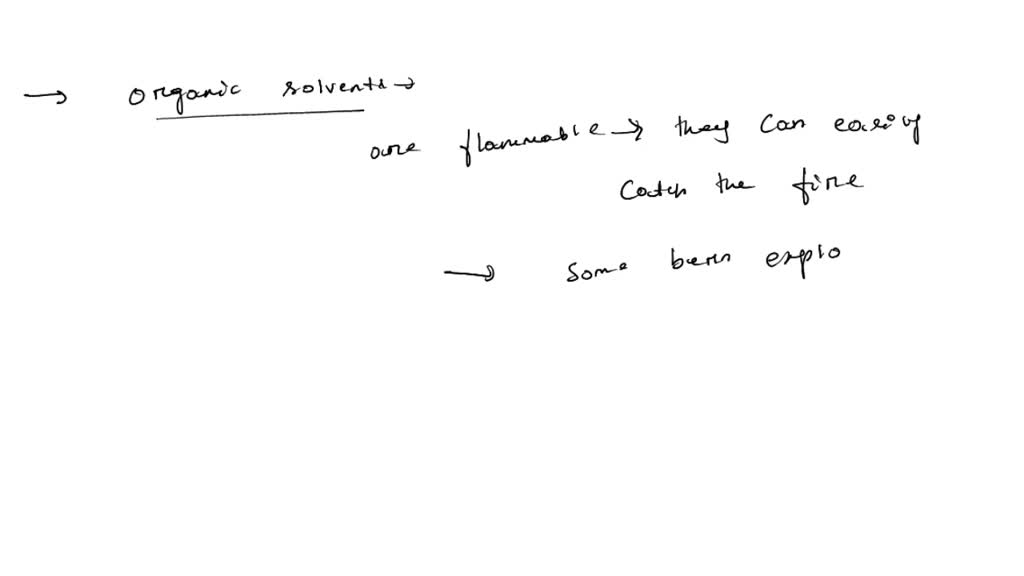 → organic solvents →
are flammable → they can easily
catch the fire
→ some burn explo